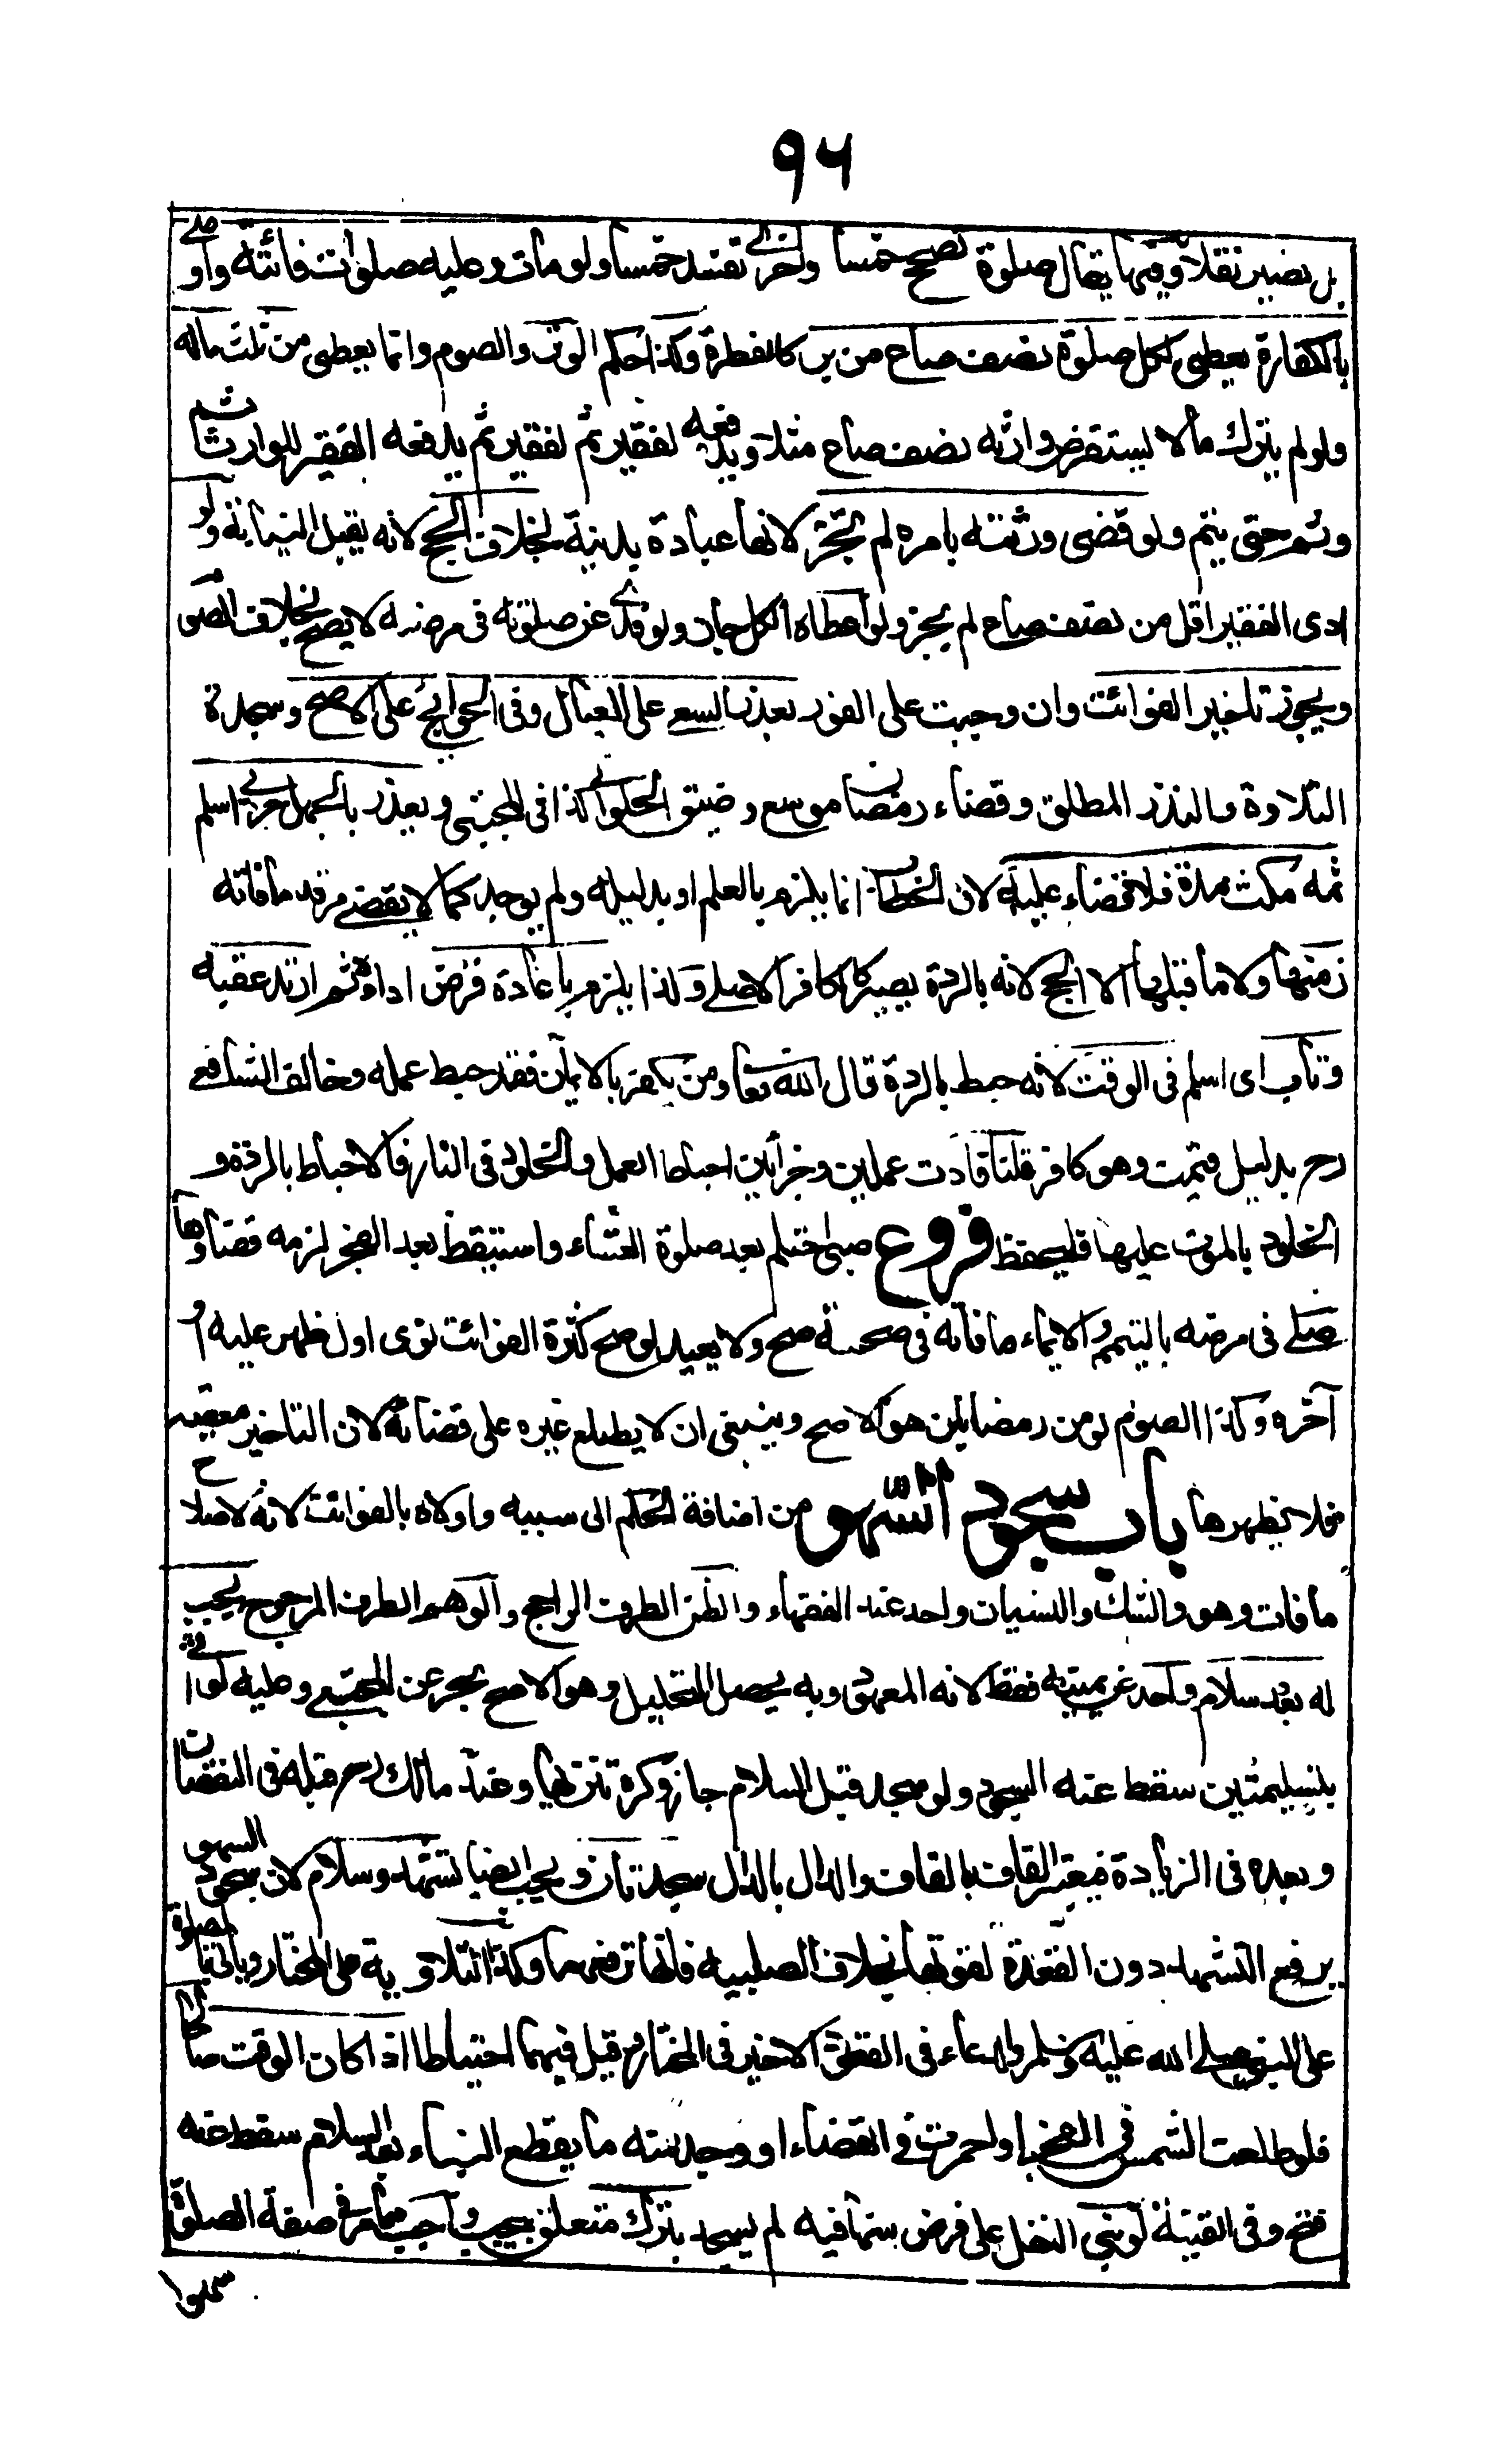 ٩٦
بل تصير نفلا وفيها يقال صلوة تصح خمسا واخرى تفسد خمسا ولو مات وعليه صلوات فائتة واوصى
بالكفارة يعطى لكل صلوة نصف صاع من بر كالفطرة وكذا حكم الوتر والصوم وانما يعطى من ثلث ماله
ولو لم يترك مالا يستقرض وارثه نصف صاع مثلا ويدفعه لفقير ثم لفقير ثم يدفعه الفقير للوارث ثم
وثم حتى يتم ولو قضى ورثته بامره لم تجز لانها عبادة بدنية بخلاف الحج لانه يقبل النيابة ولو
ادى الفقير اقل من نصف صاع لم يجز ولو اعطاه الكل جاز ولو فدى عن صلوته فى مرضه لا يصح بخلاف الصوم
ويجوز تاخير الفوائت وان وجبت على الفور بعذر السعى على العيال وفى الحوائج على الاصح وسجدة
التلاوة والنذر المطلق وقضاء رمضان موسع وضيق الحلوانى كذا فى المجتبى ويعذر بالجهل حربى اسلم
ثمه مكث مدة فلا قضاء عليه لان الخطاب انما يلزم بالعلم او بدليله ولم يوجد كما لا يقضى مرتد ما فاته
زمنها ولا ما قبلها الا الحج لانه بالردة يصير كالكافر الاصلى ولذا يلزم باعادة فرض اداه ثم ارتد عقبه
وتاب اى اسلم فى الوقت لانه حبط بالردة قال الله تعا ومن يكفر بالايمان فقد حبط عمله وخالف الشافعى
رح بدليل فيمت وهو كافر قلنا قادت عملين وجزاين احباط العمل والخلود فى النار فالاحباط بالردة و
الخلود بالموت عليها فليحفظ فروع صبى احتلم بعد صلوة العشاء واستيقظ بعد الفجر لزمه قضاؤها
صلى فى مرضه بالتيمم والايماء ما فاته فى صحته صح ولا يعيد لو صح كثرة الفوائت نوى اول ظهر عليه او
آخره وكذا الصوم لو من رمضانين هو الاصح وينبغى ان لا يطلع غيره على قضائه لان التاخير معصية
فلا يظهرها باب سجود السهو من اضافة الحكم الى سببه واولاه بالفوائت لانه لاصلاح
ما فات وهو والشك والنسيان واحد عند الفقهاء والظن الطرف الراجح والوهم الطرف المرجوح يجب
له بعد سلام واحد عن يمينه فقط لانه المعهود وبه يحصل التحليل وهو الاصح بحر عن المجتبى وعليه لو اتى
بتسليمتين سقط عنه السجود ولو سجد قبل السلام جاز وكره تنزيها وعند مالك رح قبله فى النقصان
وبعده فى الزيادة فيعتبر القاف بالقاف والدال بالدال سجدتان ويجب ايضا تشهد وسلام لان سجود السهو
يرفع التشهد دون القعدة لقوتها بخلاف الصلبيه فانها ترفعهما وكذا التلاوية على المختار وياتى بالصلوة
على النبى صلى الله عليه وسلم والدعاء فى القعود الاخير فى المختار وقيل فيهما احتياطا اذا كان الوقت صالحا
فلو طلعت الشمس فى الفجر او احمرت فى القضاء او وجد منه ما يقطع البناء بعد السلام سقط عنه
فتح وفى القنية لو بنى النفل على فرض سها فيه لم يسجد بترك متعلق بيجب واجب مما مر فى صفة الصلوة
سهوا